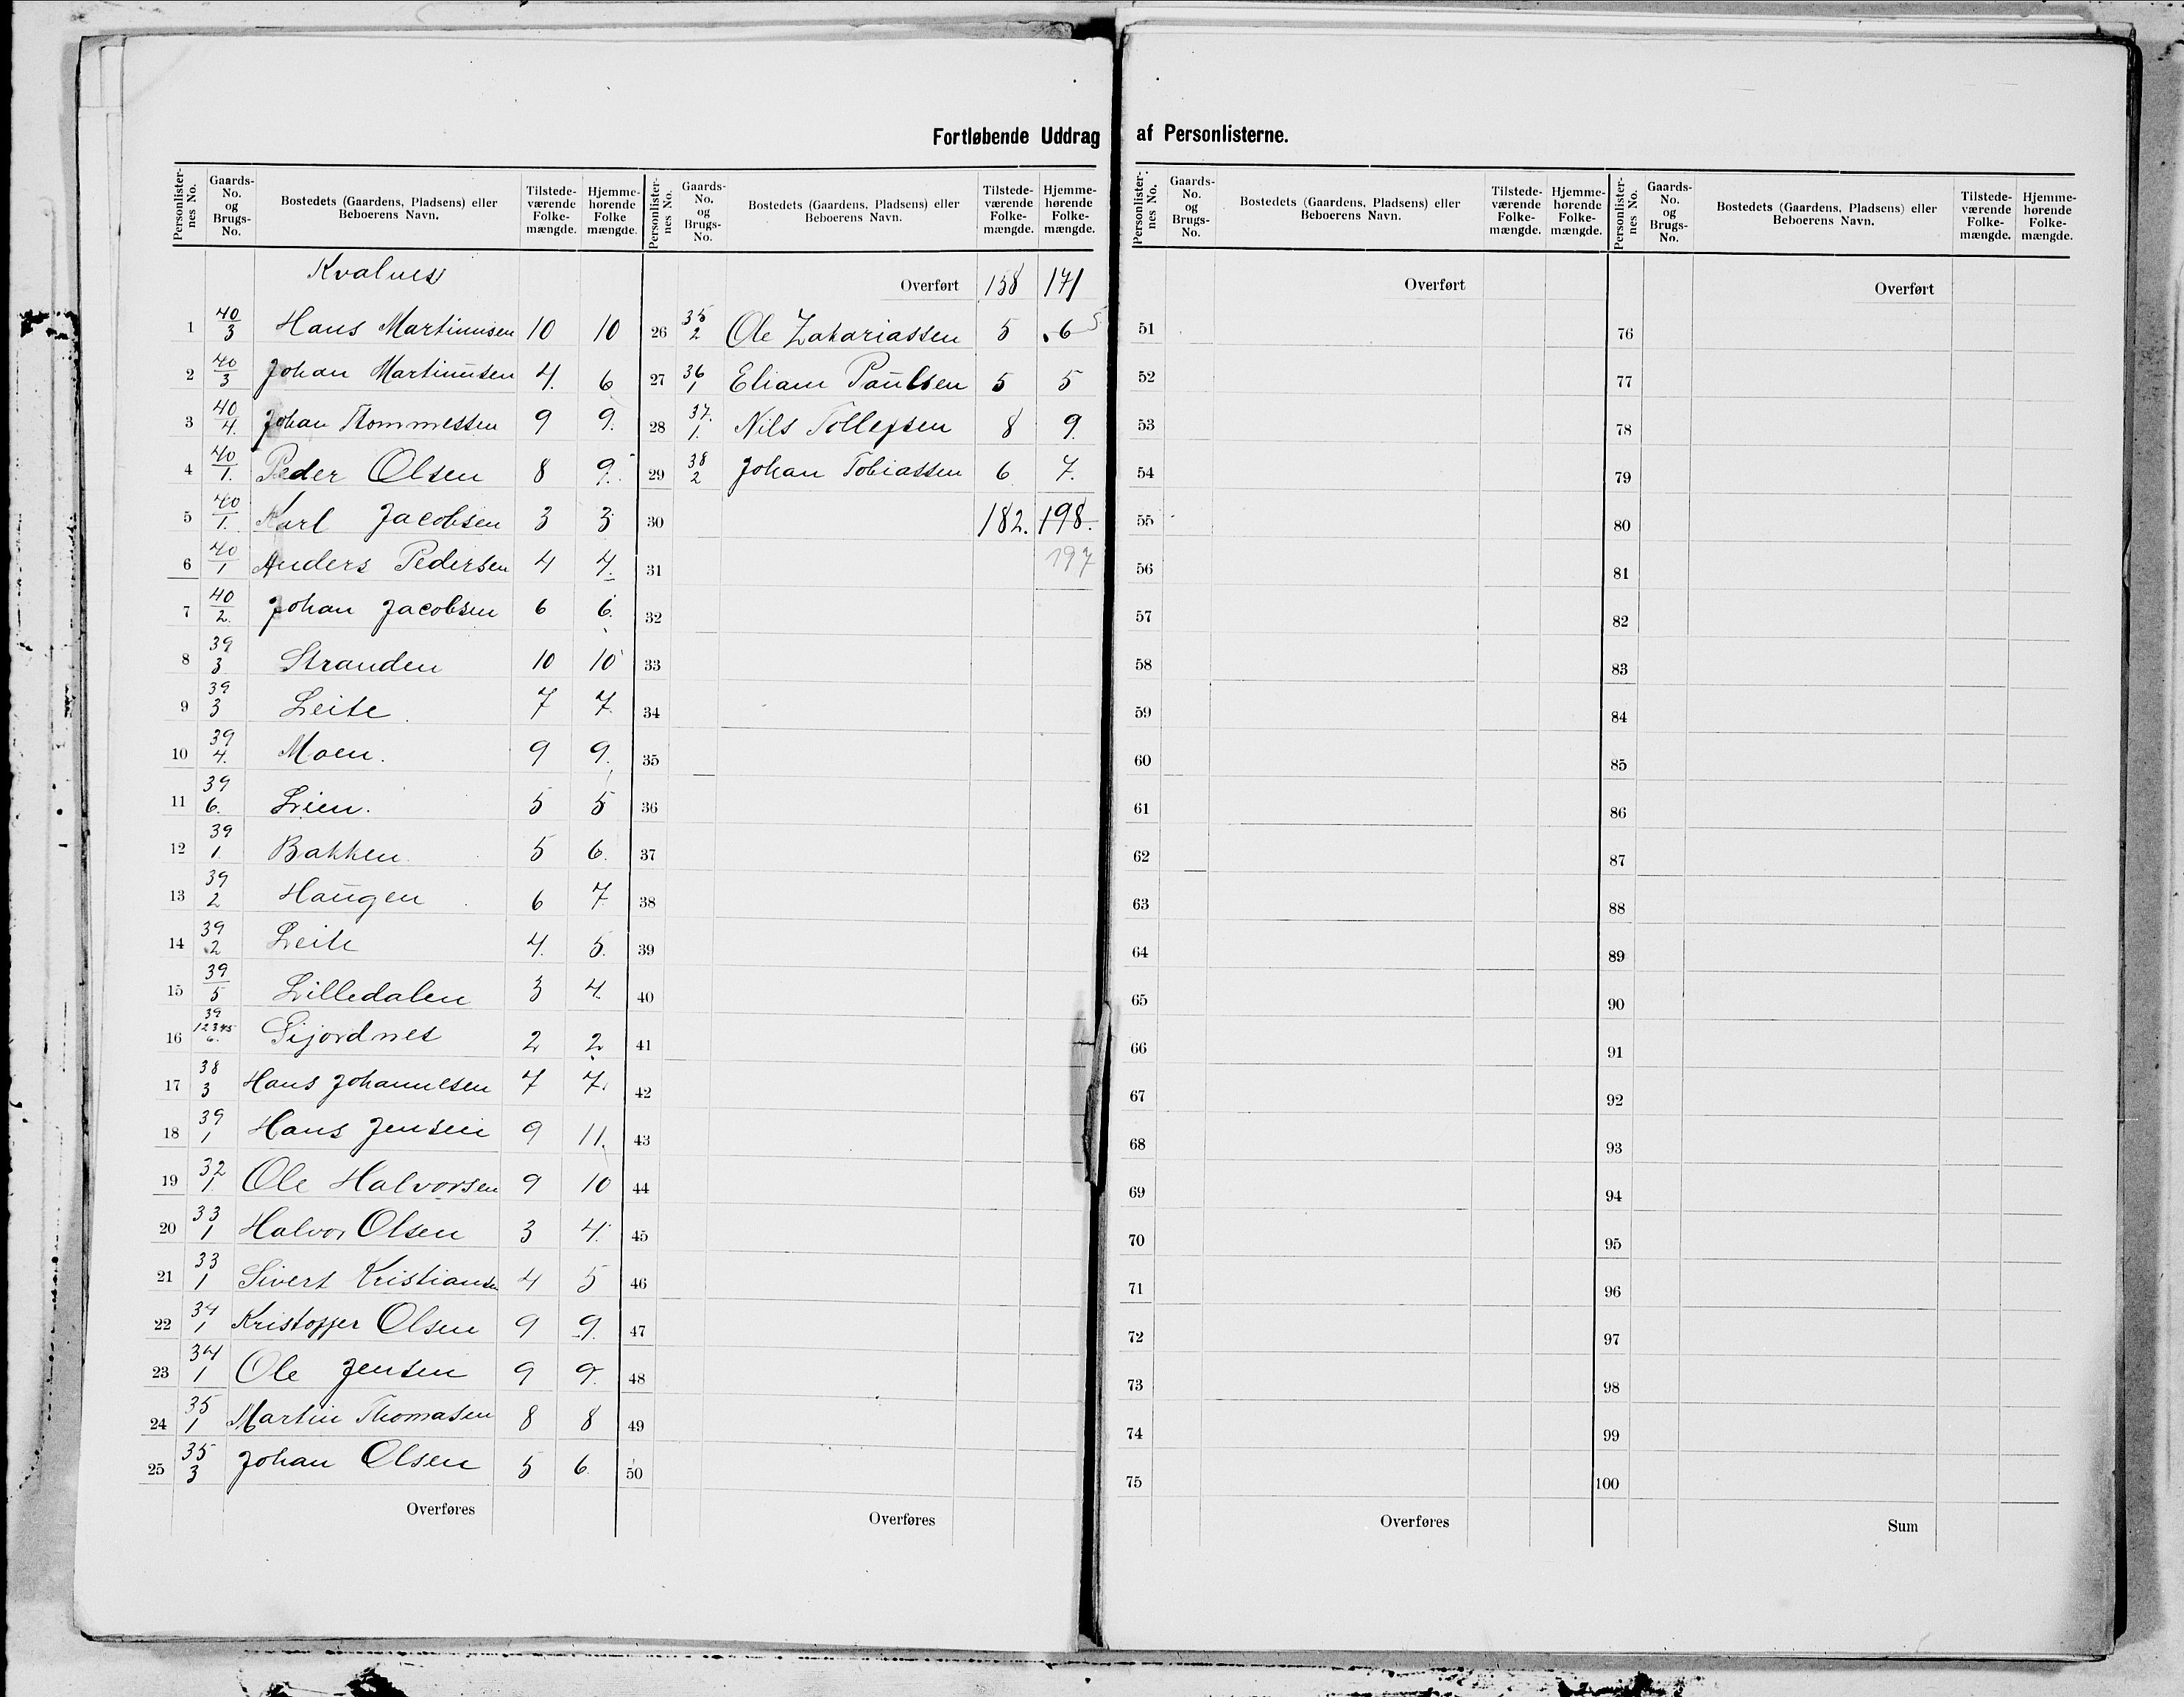 Fortløbende Uddrag af Personlisterne.
Personlister-nes No. | Gaards-No. og Brugs-No. | Bostedets (Gaardens, Pladsens) eller Beboerens Navn. | Tilstede-værende Folke-mængde. | Hjemme-hørende Folke mængde.
Kvalnes
1 40/3 Hans Martinusen 10 10
2 40/3 Johan Martinusen 4. 6
3 40/4. Johan Thommessen 9 9.
4 40/1. Peder Olsen 8 9.
5 40/1. Karl Jacobsen 3 3
6 40/1 Anders Pedersen 4 4.
7 40/2. Johan Jacobsen 6 6.
8 39 3 Stranden 10 10
9 39 3 Leite. 7 7.
10 39 4. Moen. 9 9.
11 39 6. Lien. 5 5
12 39 1. Bakken. 5 6.
13 39 2 Haugen 6 7
14 39 2 Leite 4. 5.
15 39/5 Lilledalen 3 4.
16 39 12345 6. Sijordnes 2 2
17 38 3 Hans Johannesen 7 7.
18 39 1 Hans Jensen 9 11.
19 32 1. Ole Halvorsen 9 10
20 33 1 Halvor Olsen 3 4.
21 33 1 Sivert Kristiansen 4 5
22 34 1 Kristoffer Olsen 9 9.
23 34 1 Ole Jensen 9 9.
24 35 1 Martin Thomasen 8 8
25 35 3 Johan Olsen 5 6.
Overføres
Personlister-nes No. | Gaards-No. og Brugs-No. | Bostedets (Gaardens, Pladsens) eller Beboerens Navn. | Tilstede-værende Folke-mængde. | Hjemme-hørende Folke-mængde.
Overført 158 171
26 35 2 Ole Zakariassen 5 6 5
27 36 1 Eliam Paulsen 5 5
28 37. 1. Nils Tollefsen 8 9.
29 38 2 Johan Tobiassen 6 7.
30 182. 198.
31 197
32
33
34
35
36
37
38
39
40
41
42
43
44
45
46
47
48
49
50
Overføres
Personlister-nes No. | Gaards-No. og Brugs-No. | Bostedets (Gaardens, Pladsens) eller Beboerens Navn. | Tilstede-værende Folke-mængde. | Hjemme-hørende Folke-mængde.
Overført
51
52
53
54
55
56
57
58
59
60
61
62
63
64
65
66
67
68
69
70
71
72
73
74
75
Overføres
Personlister-nes No. | Gaards-No. og Brugs-No. | Bostedets (Gaardens, Pladsens) eller Beboerens Navn. | Tilstede-værende Folke-mængde. | Hjemme-hørende Folke-mængde.
Overført
76
77
78
79
80
81
82
83
84
85
86
87
88
89
90
91
92
93
94
95
96
97
98
99
100
Sum